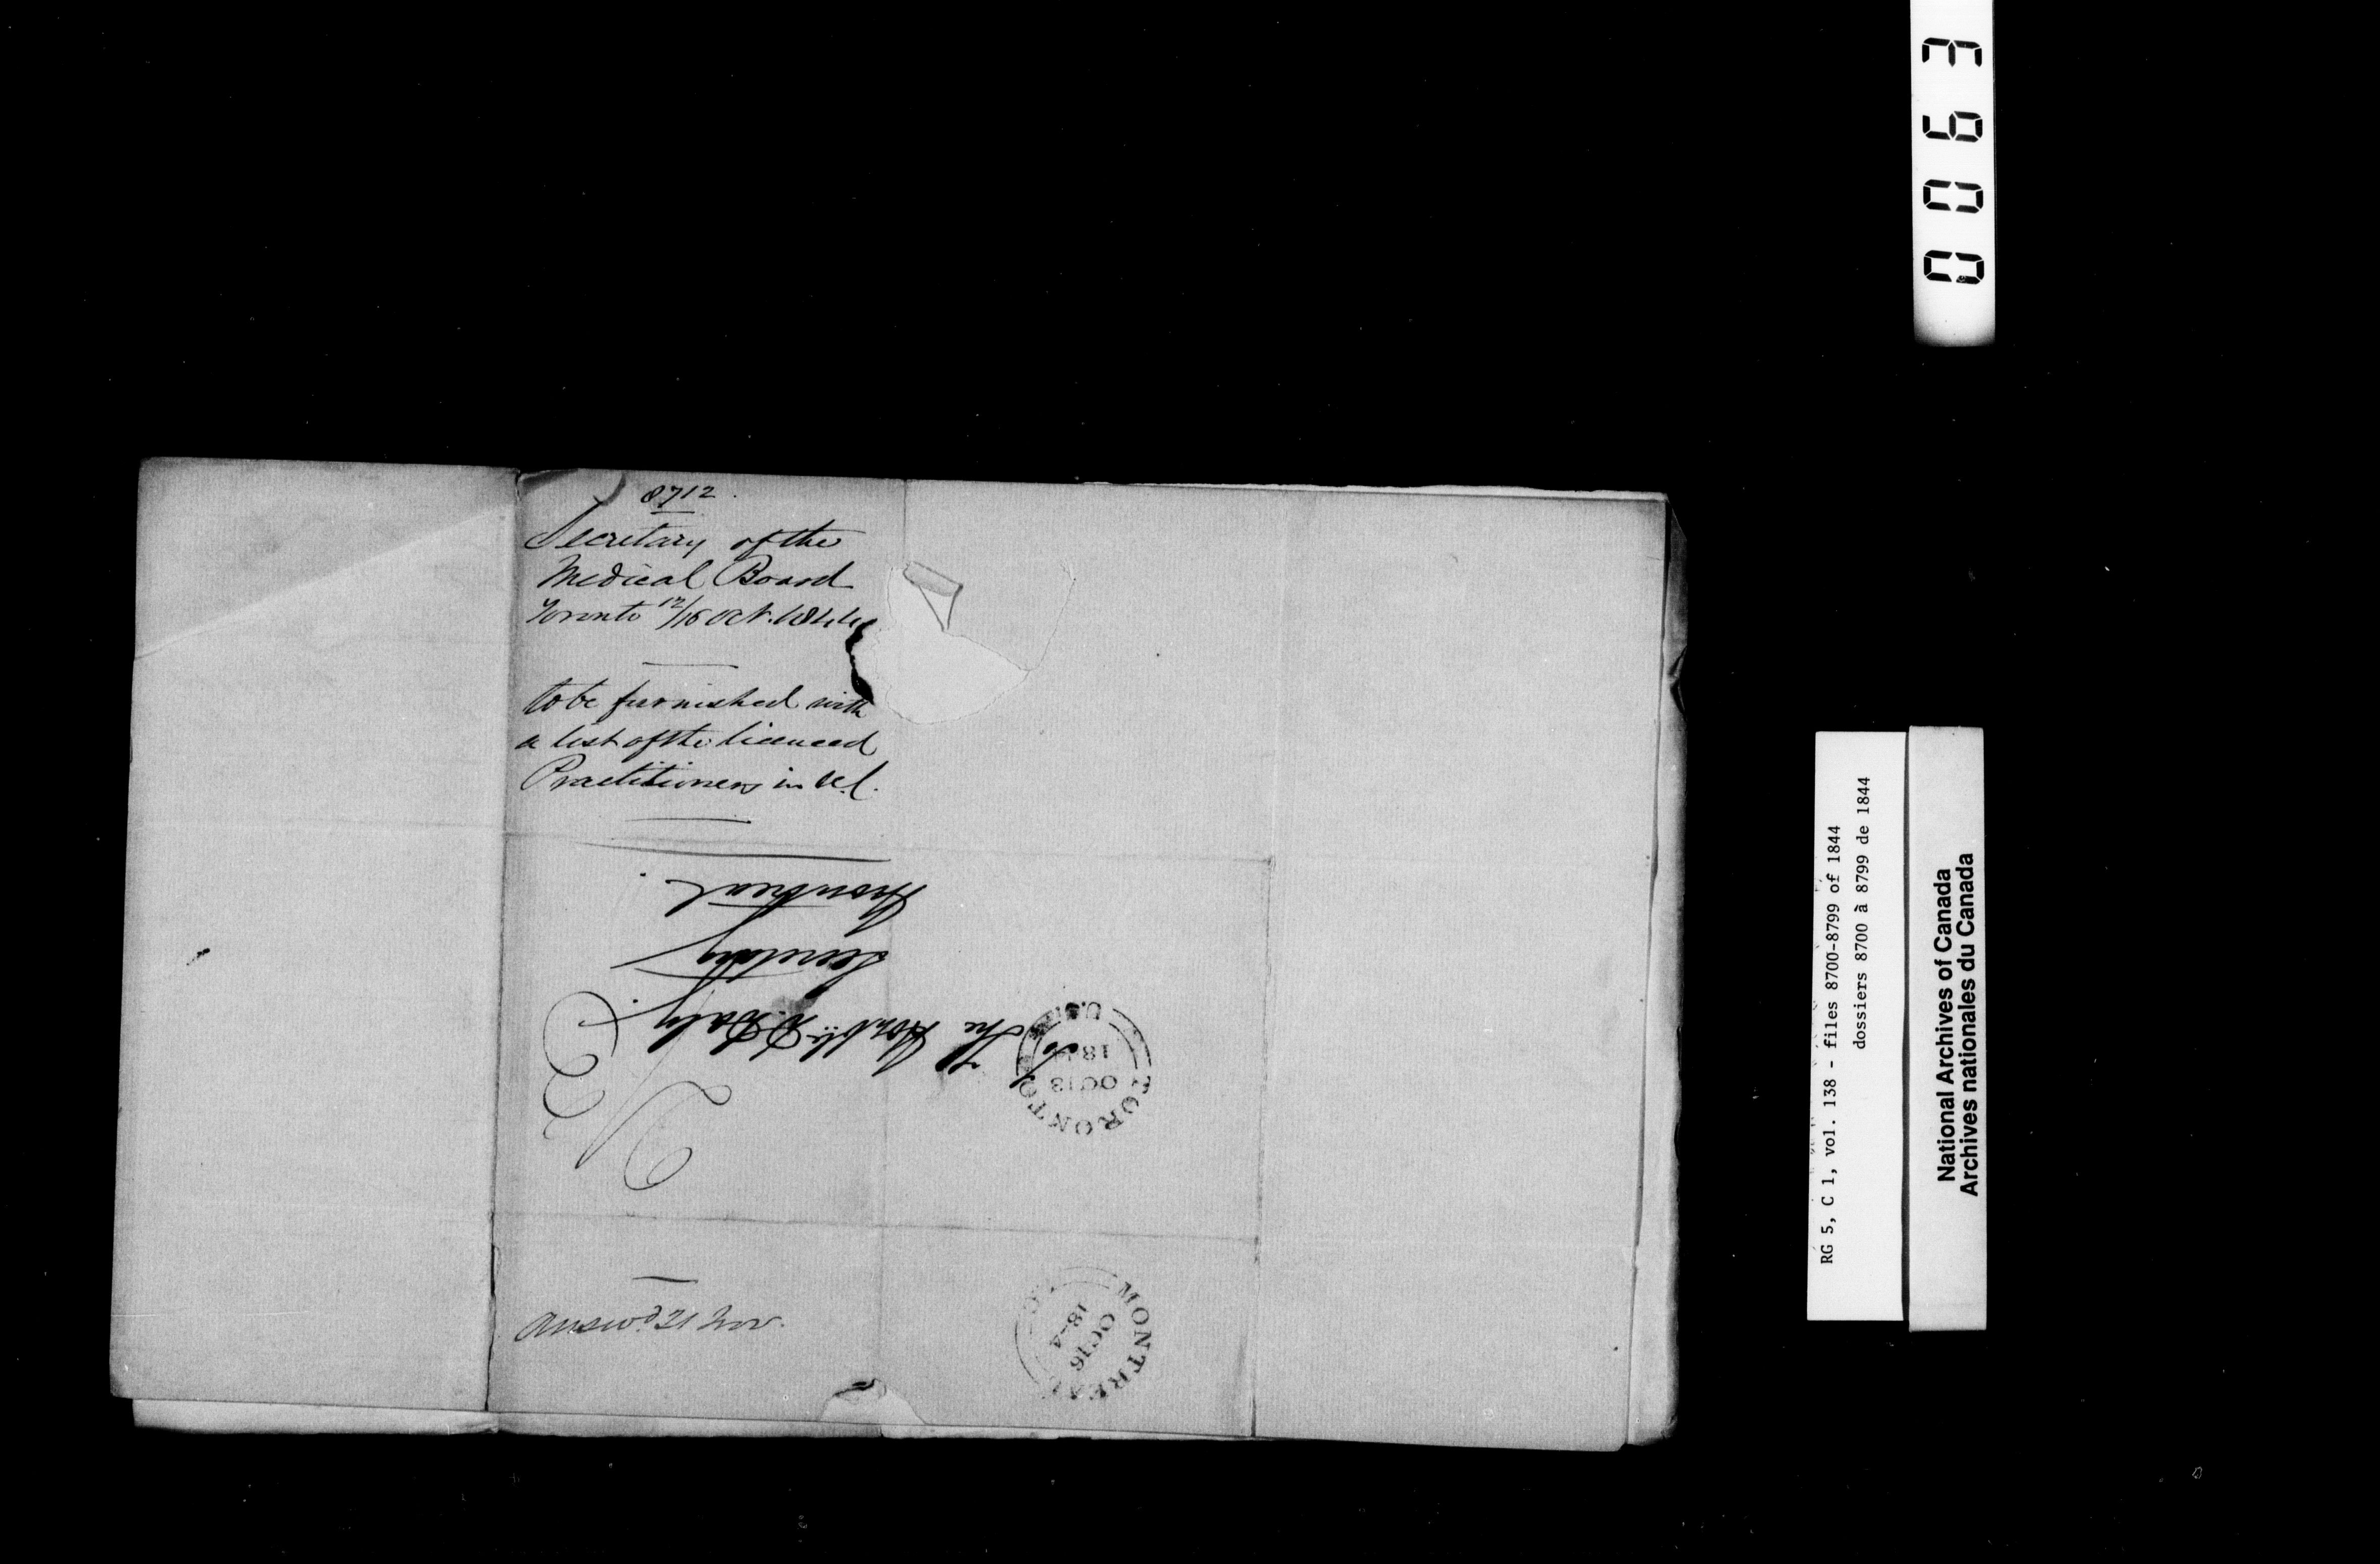 8712.
Secretary of the
Medical Board
Toronto 12/16 Oct. 1844
to be furnished with
a list of the licenced
Practitioners in U.C.
To
The Honble. D. Daly.
Secretary
Montreal.
TORONTO
OC 13
18
U.C.
answd. 21 Nov.
MONTREAL
OC 16
18-4
0063
RG 5, C 1, vol. 138 - files 8700-8799 of 1844
dossiers 8700 à 8799 de 1844
National Archives of Canada
Archives nationales du Canada